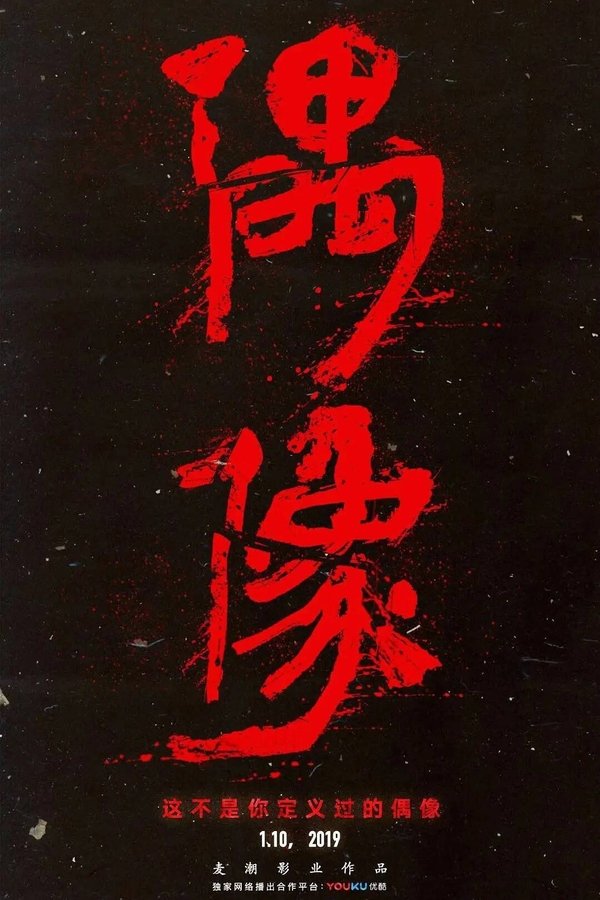 偶
像
这不是你定义过的偶像
1.10, 2019
麦潮影业作品
独家网络播出合作平台：YOUKU优酷